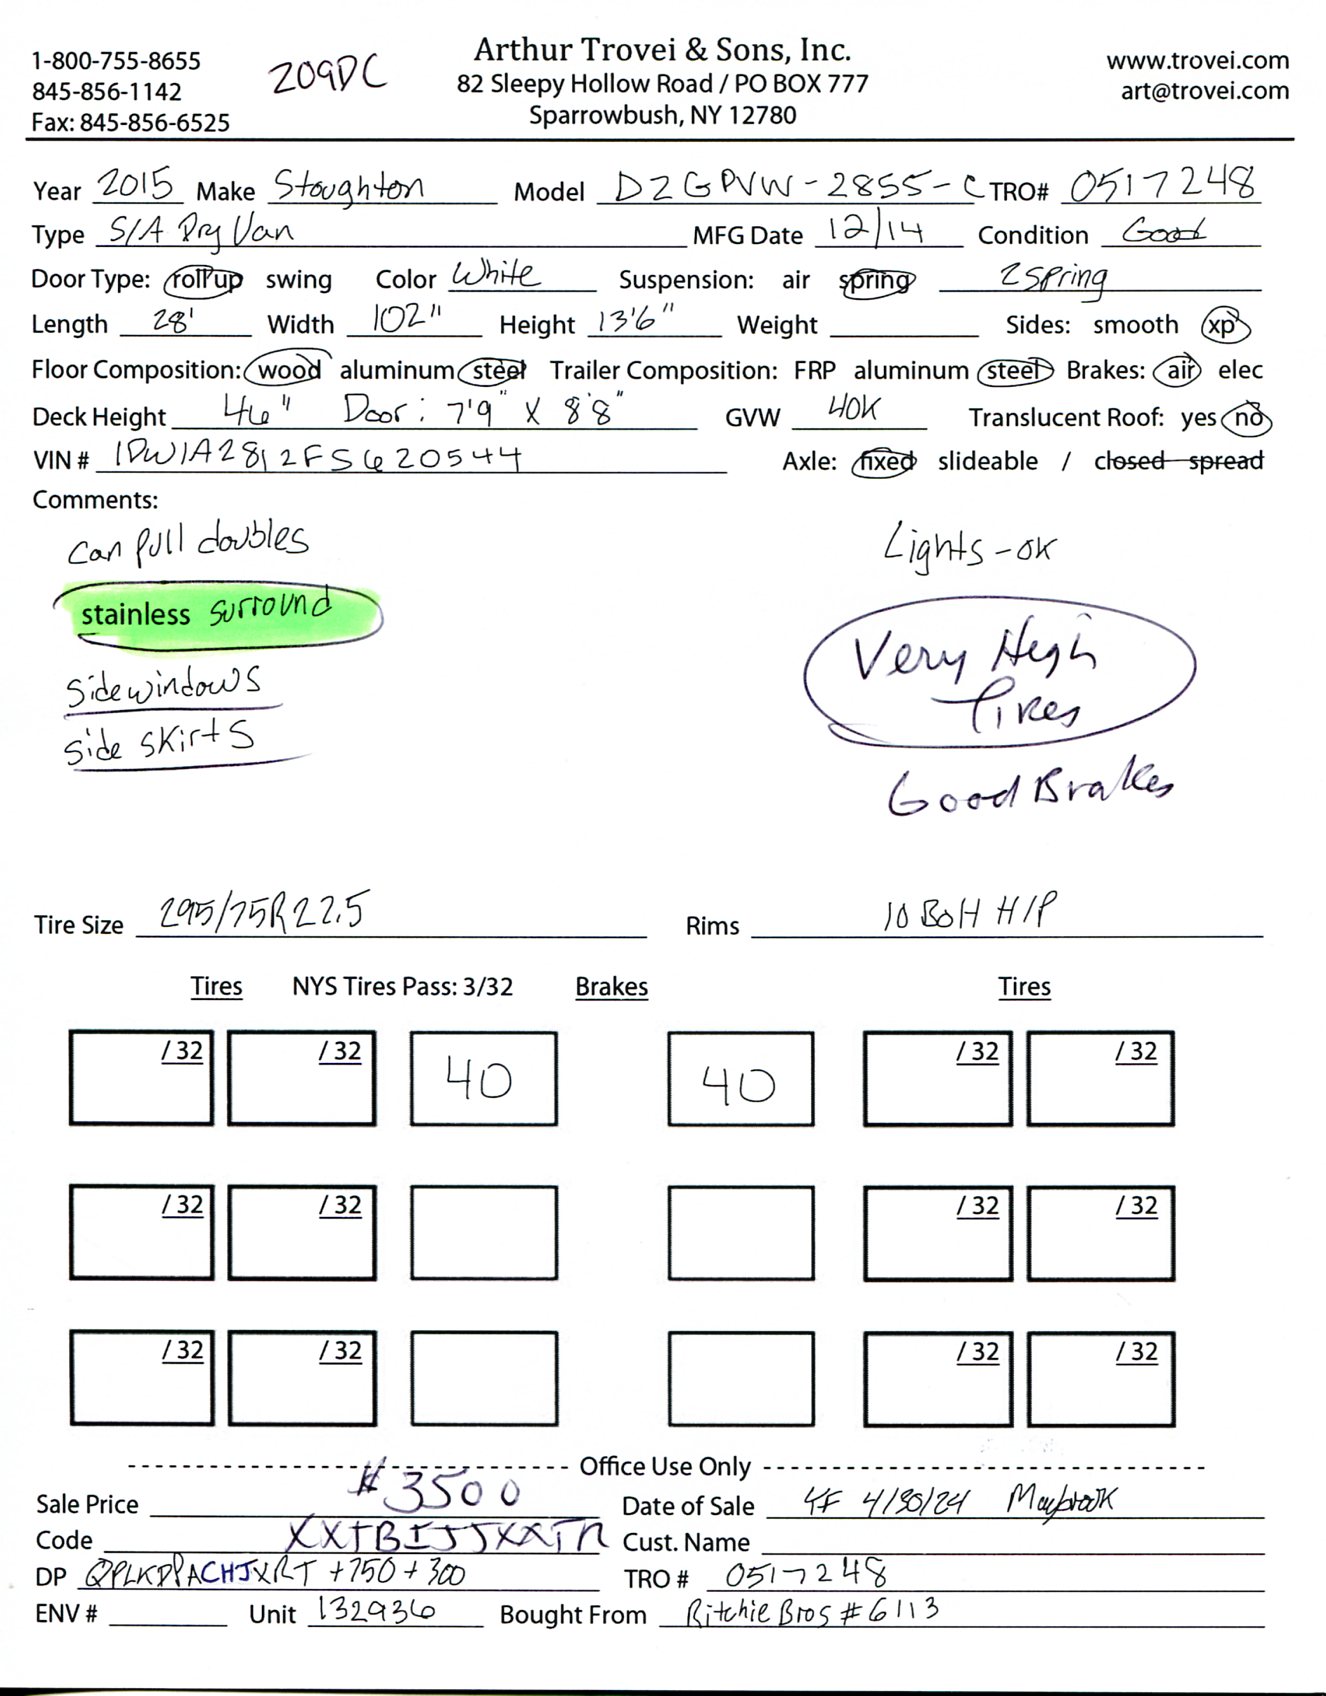 1-800-755-8655
845-856-1142
Fax: 845-856-6525
209DC
Arthur Trovei & Sons, Inc.
82 Sleepy Hollow Road / PO BOX 777
Sparrowbush, NY 12780
www.trovei.com
art@trovei.com
Year 2015 Make Stoughton Model DZGPVW-2855-C TRO# 0517248
Type S/A Dry Van MFG Date 12/14 Condition Good
Door Type: rollup swing Color White Suspension: air spring 2 Spring
Length 28' Width 102" Height 13'6" Weight Sides: smooth xp
Floor Composition: wood aluminum steel Trailer Composition: FRP aluminum steel Brakes: air elec
Deck Height 46" Door: 7'9" X 8'8" GVW 40K Translucent Roof: yes no
VIN # 1DW1A2812FS620544 Axle: fixed slideable / closed spread
Comments:
can pull doubles
Lights - ok
stainless surround
Very High Tires
sidewindows
side skirts
Good Brakes
Tire Size 295/75R22.5 Rims 10 BoH H/P
Tires NYS Tires Pass: 3/32 Brakes Tires
/ 32 / 32 40 40 / 32 / 32
/ 32 / 32 / 32 / 32
/ 32 / 32 / 32 / 32
Office Use Only
Sale Price $3500 Date of Sale 4/30/24 Maybrook
Code Cust. Name
DP +750 + 300 TRO # 0517248
ENV # Unit 132936 Bought From Ritchie Bros #6113